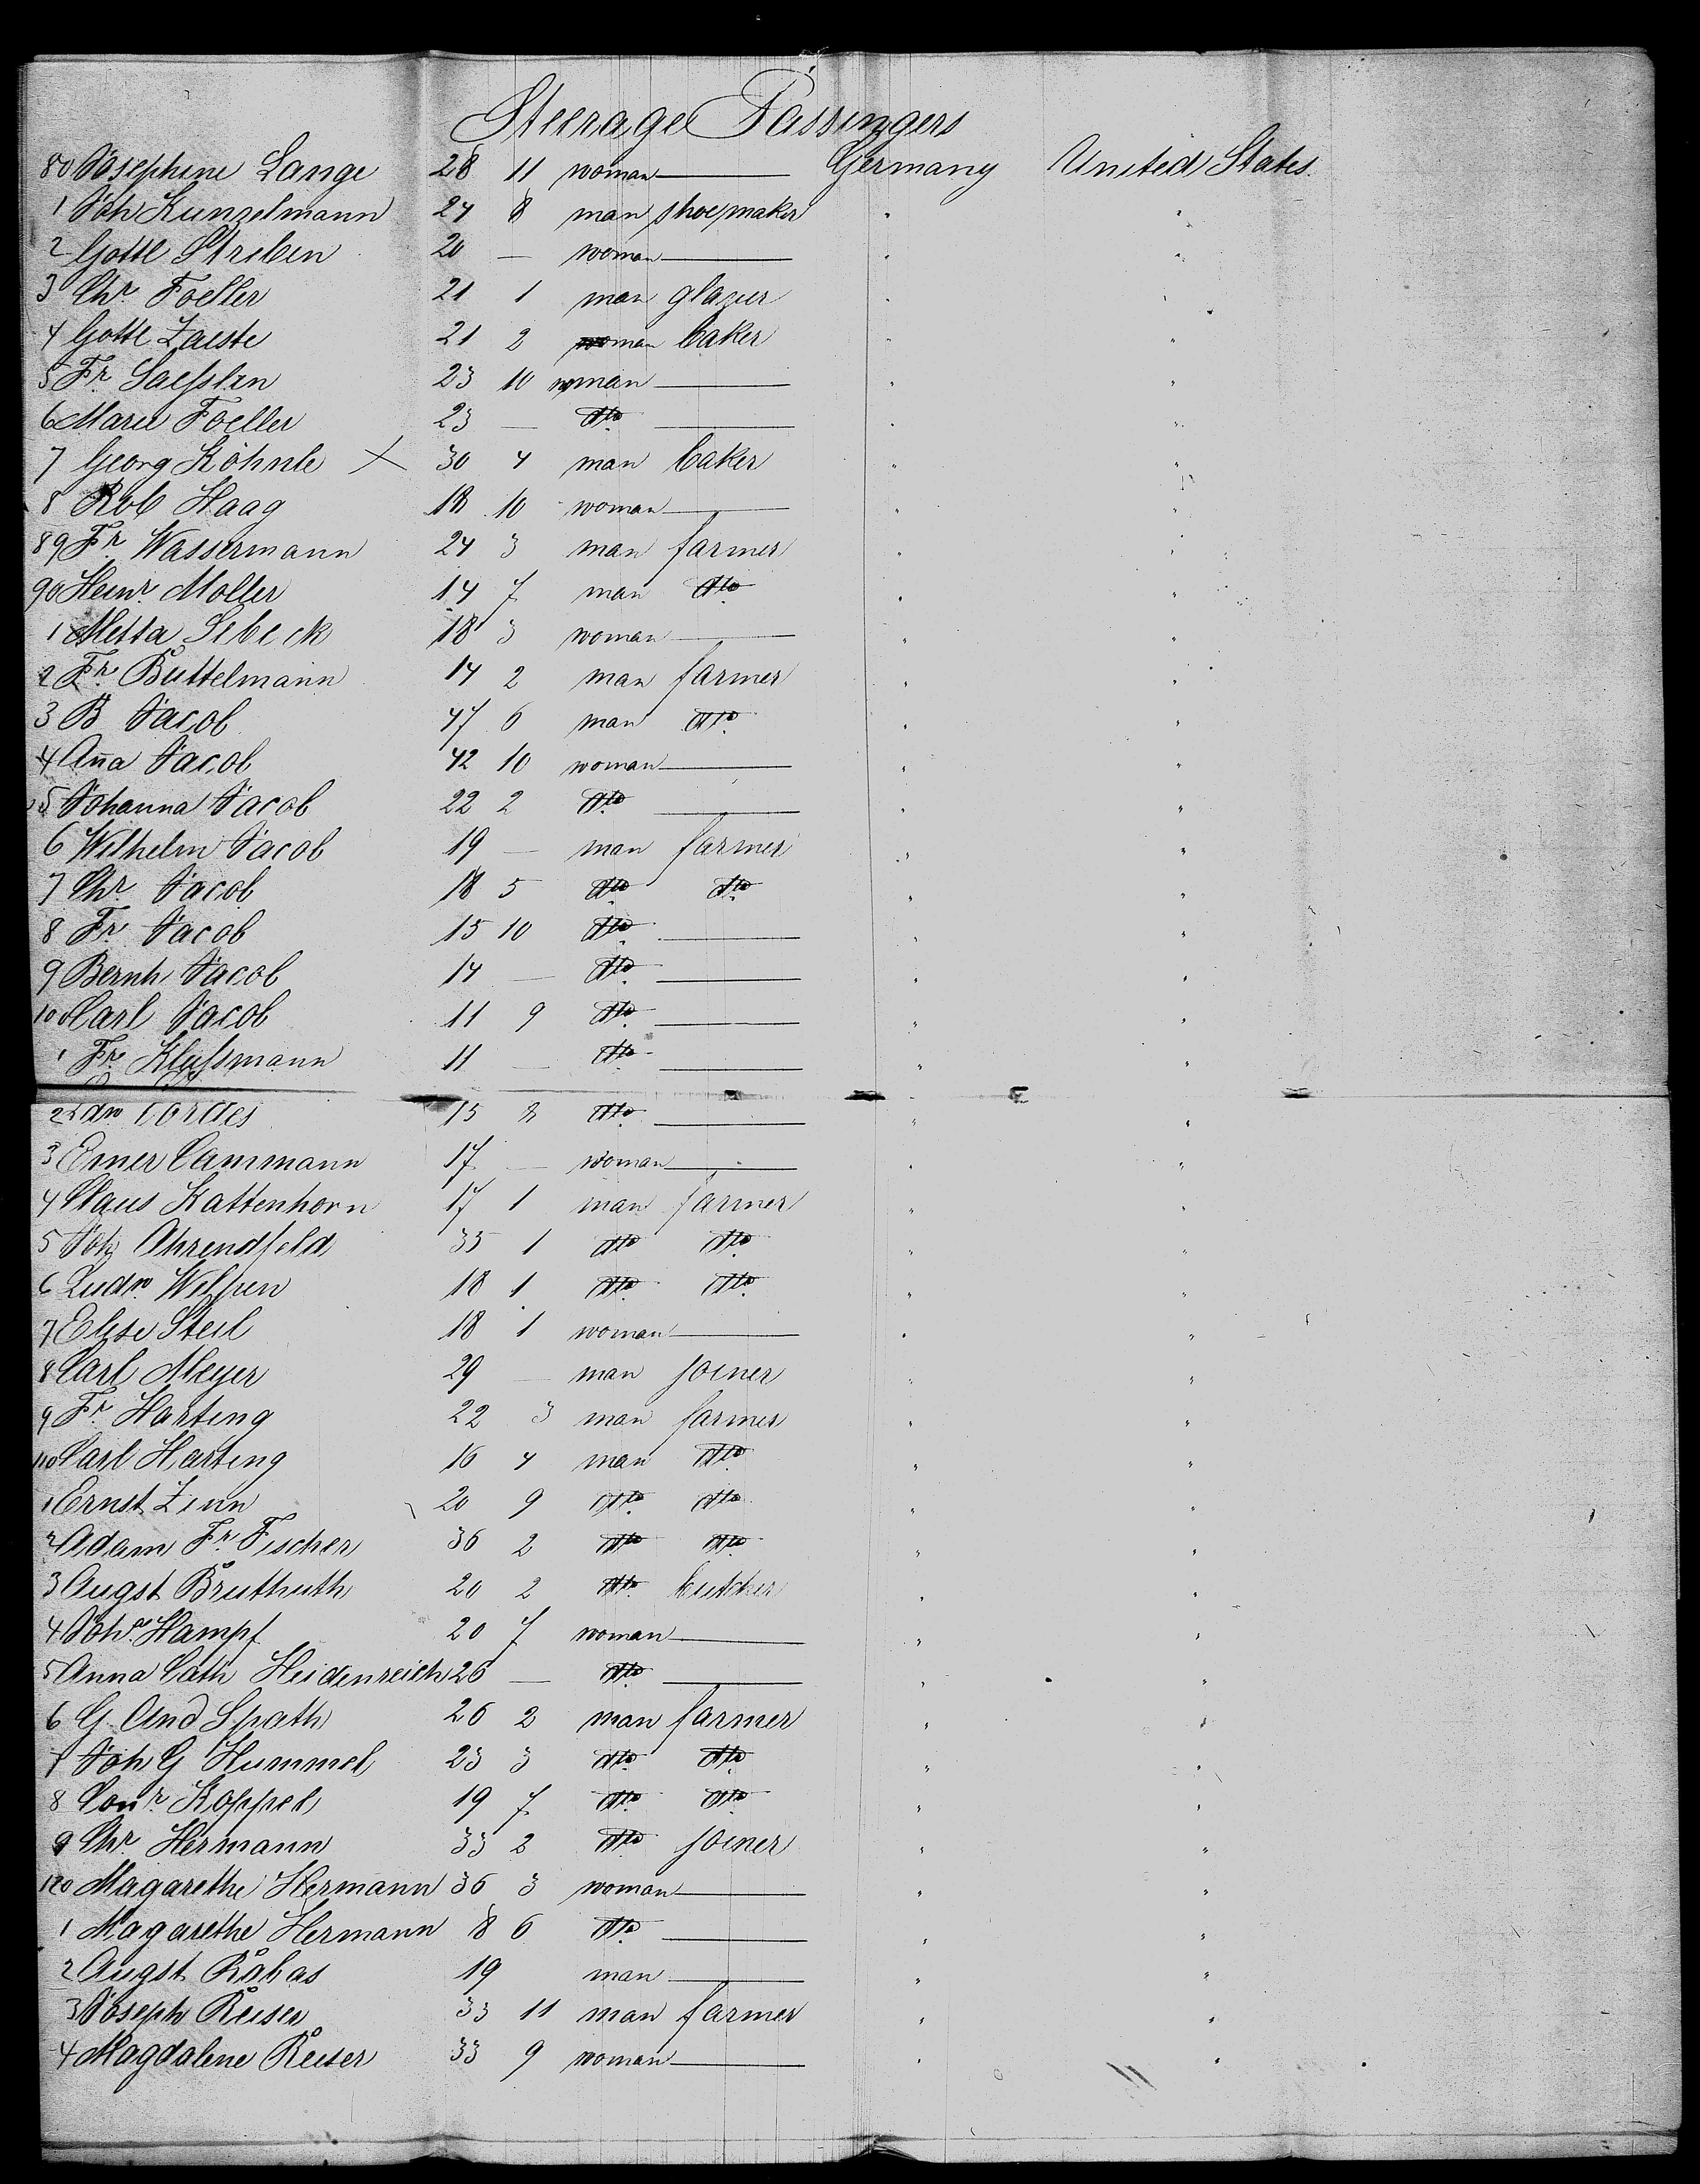 Steerage Passingers
80 Josephine Lange 28 11 woman — Germany United States.
1 Joh Kunzelmann 24 8 man shoemaker " "
2 Gottl Striben 20 — woman — " "
3 Chr Foeller 21 1 man glazier " "
4 Gottl Zaiste 21 2 man baker " "
5 Fr. 23 10 woman — " "
6 Marie Foeller 23 — dto — " "
7 Georg Köhnle X 30 4 man baker " "
8 Rob Haag 18 10 woman — " "
89 Fr. Wassermann 24 3 man farmer " "
90 Heinr. Moller 14 7 man dto " "
1 Metta Sebeck 18 3 woman — " "
2 Fr. Buttelmann 14 2 man farmer " "
3 B Jacob 47 6 man dto " "
4 Aña Jacob 42 10 woman — " "
5 Johanna Jacob 22 2 dto — " "
6 Wilhelm Jacob 19 — man farmer " "
7 Chr. Jacob 18 5 dto dto " "
8 Fr. Jacob 15 10 dto — " "
9 Bernh Jacob 14 — dto — " "
100 Carl Jacob 11 9 dto — " "
1 Fr. Klussmann 11 — dto — " "
2 Edw Cordes 15 2 dto — " "
3 Emer Cammann 17 — woman — " "
4 Claus Kattenhorn 17 1 man farmer " "
5 Joh Ahrendfeld 35 1 dto dto " "
6 Ludw. 18 1 dto dto " "
7 Elise Steil 18 1 woman — " "
8 Carl Meyer 29 — man joiner " "
9 Fr. Harting 22 3 man farmer " "
110 Carl Harting 16 4 man dto " "
1 Ernst Zinn 20 9 dto dto " "
2 Adam Fr. Fischer 36 2 dto dto " "
3 Augst Bruthuth 20 2 dto butcher " "
4 Johe Hampf 20 7 woman — " "
5 Anna Cath Heidenreich 26 — dto — " "
6 G. And Spath 26 2 man farmer " "
7 Joh G Hummel 23 3 dto dto " "
8 Conr. Koppel 19 7 dto dto " "
9 Chr. Hermann 33 2 dto joiner " "
120 Magarethe Hermann 36 3 woman — " "
1 Magarethe Hermann 8 6 dto — " "
2 Augst Rabas 19 man — " "
3 Joseph Reiser 33 11 man farmer " "
4 Magdalene Reiser 33 9 woman — " "